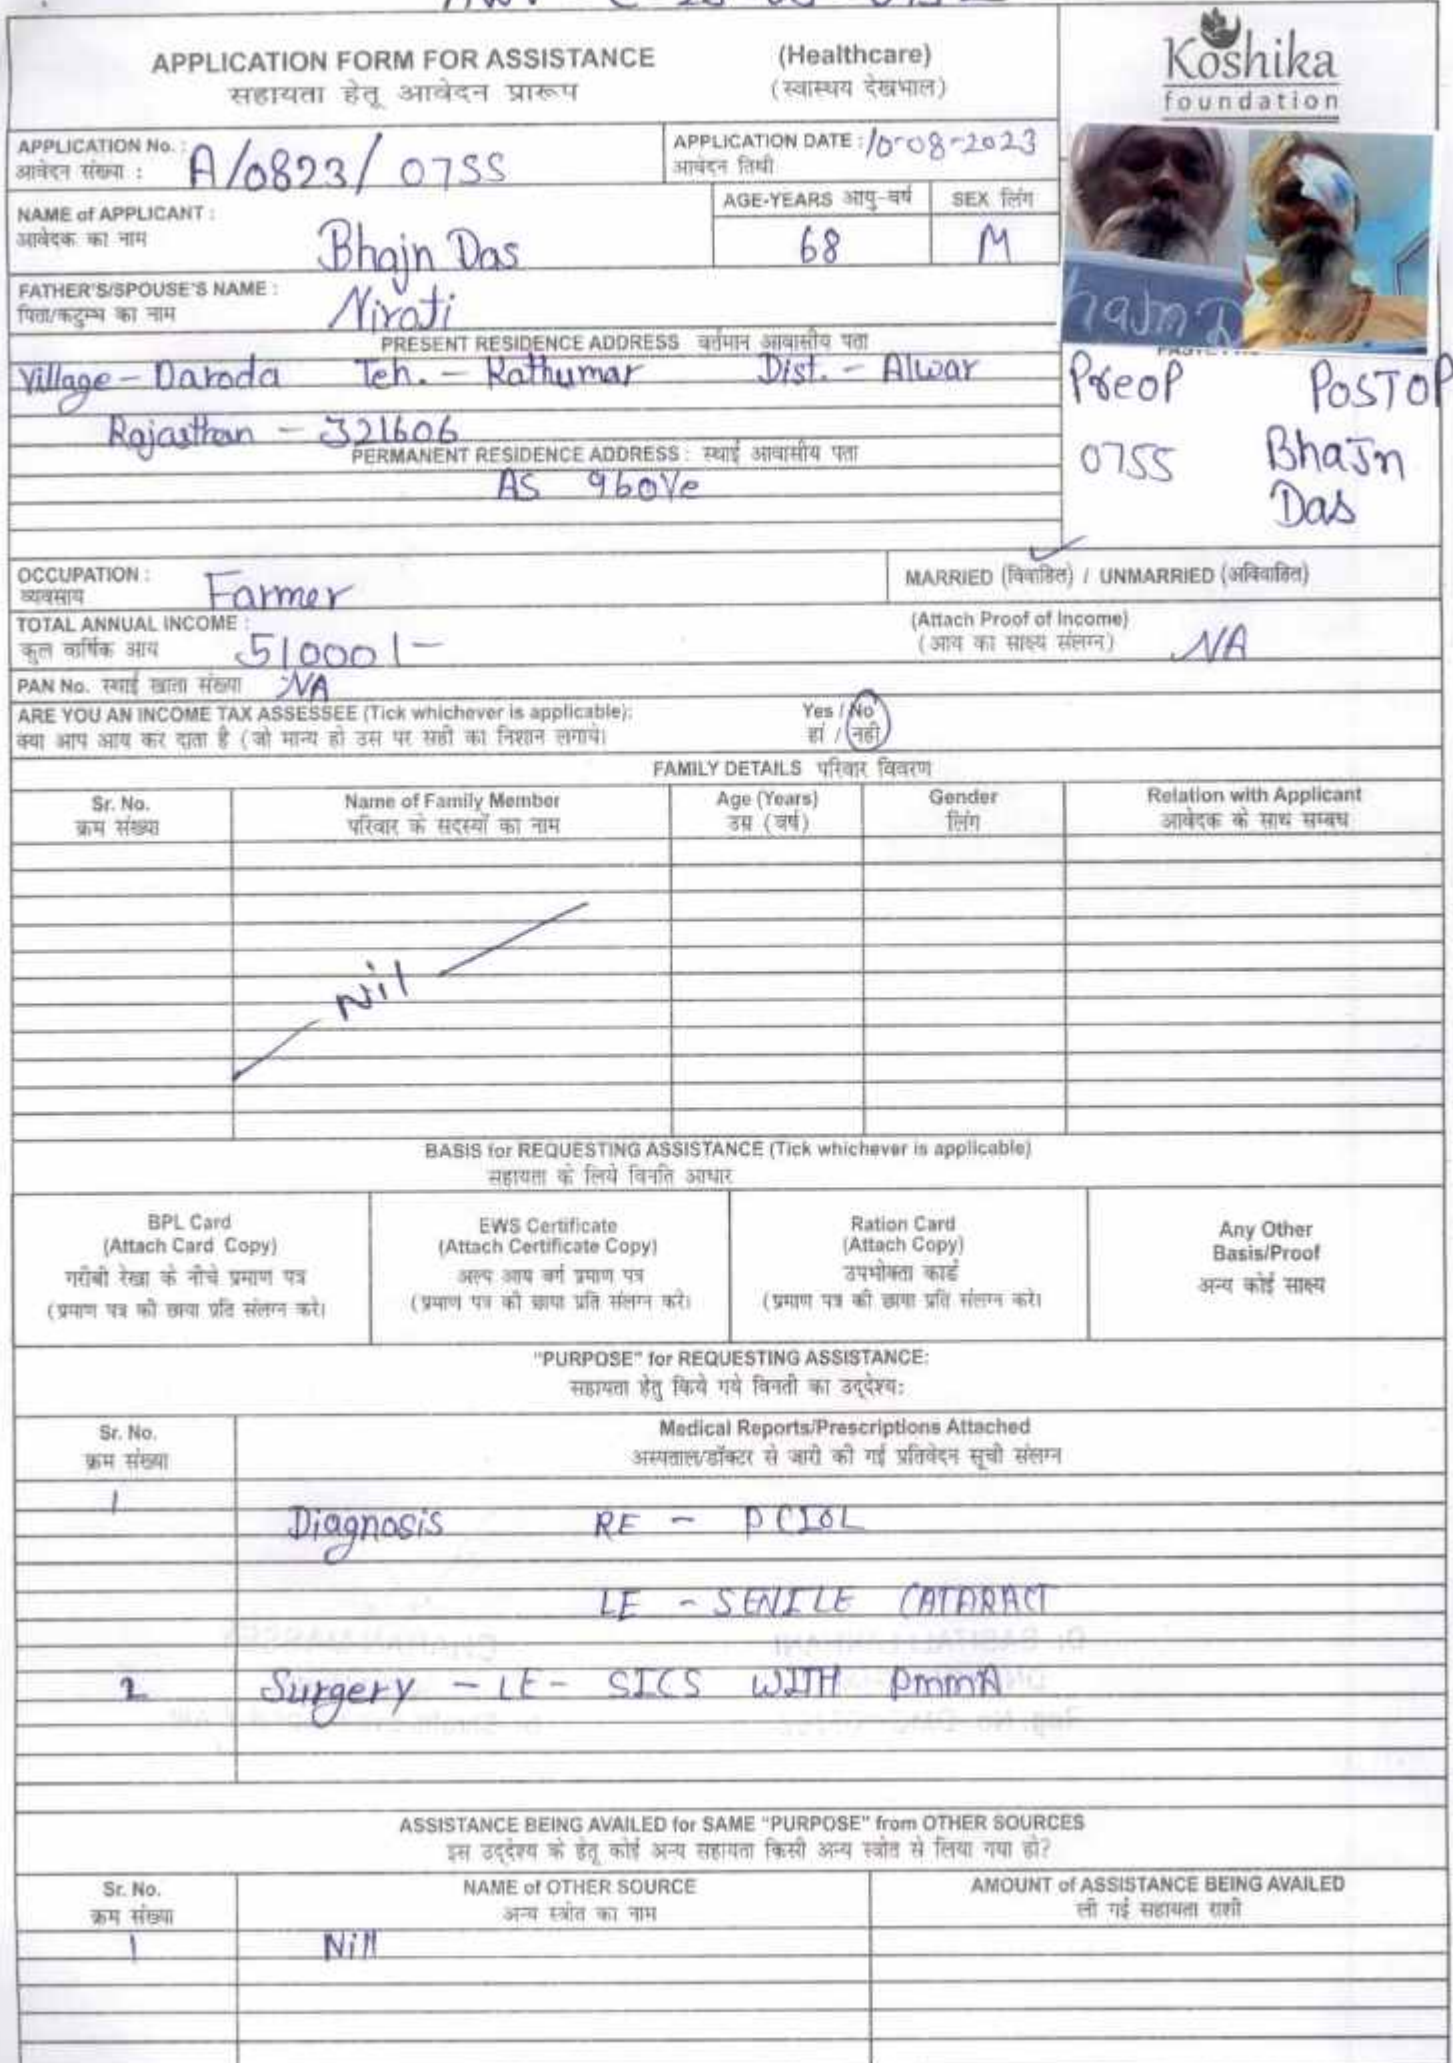 APPLICATION FORM FOR ASSISTANCE (Healthcare)
सहायता हेतू आवेदन प्रारूप (स्वास्थय देखभाल)
Koshika
foundation
APPLICATION No. : A/0823/0755
आवेदन संख्या :
APPLICATION DATE : 10-08-2023
आवेदन तिथी
NAME of APPLICANT : Bhajn Das
आवेदक का नाम
AGE-YEARS आयु-वर्ष 68
SEX लिंग M
FATHER'S/SPOUSE'S NAME : Niroti
पिता/कटुम्ब का नाम
PRESENT RESIDENCE ADDRESS वर्तमान आवासीय पता
Village - Daroda Teh. - Kathumar Dist. - Alwar
Rajasthan - 321606
PERMANENT RESIDENCE ADDRESS : स्थाई आवासीय पता
AS above
Preop POSTOP
0755 Bhajn
Das
OCCUPATION : Farmer
व्यवसाय
MARRIED (विवाहित) / UNMARRIED (अविवाहित)
TOTAL ANNUAL INCOME : 51000/-
कुल वार्षिक आय
(Attach Proof of Income) NA
(आय का साक्ष्य संलग्न)
PAN No. स्थाई खाता संख्या NA
ARE YOU AN INCOME TAX ASSESSEE (Tick whichever is applicable): Yes / No
क्या आप आय कर दाता है (जो मान्य हो उस पर सही का निशान लगाये। हां / नही
FAMILY DETAILS परिवार विवरण
Sr. No. Name of Family Member Age (Years) Gender Relation with Applicant
क्रम संख्या परिवार के सदस्यों का नाम उम्र (वर्ष) लिंग आवेदक के साथ सम्बध
Nil
BASIS for REQUESTING ASSISTANCE (Tick whichever is applicable)
सहायता के लिये विनति आधार
BPL Card
(Attach Card Copy)
गरीबी रेखा के नीचे प्रमाण पत्र
(प्रमाण पत्र की छाया प्रति संलग्न करे।
EWS Certificate
(Attach Certificate Copy)
अल्प आय वर्ग प्रमाण पत्र
(प्रमाण पत्र की छाया प्रति संलग्न करे।
Ration Card
(Attach Copy)
उपभोक्ता कार्ड
(प्रमाण पत्र की छाया प्रति संलग्न करे।
Any Other
Basis/Proof
अन्य कोई साक्ष्य
"PURPOSE" for REQUESTING ASSISTANCE:
सहायता हेतु किये गये विनती का उद्देश्य:
Sr. No. Medical Reports/Prescriptions Attached
क्रम संख्या अस्पताल/डॉक्टर से जारी की गई प्रतिवेदन सूची संलग्न
1 Diagnosis RE - PCIOL
LE - SENILE CATARACT
2 Surgery - LE - SICS WITH PMMA
ASSISTANCE BEING AVAILED for SAME "PURPOSE" from OTHER SOURCES
इस उद्देश्य के हेतू कोई अन्य सहायता किसी अन्य स्त्रोत से लिया गया हो?
Sr. No. NAME of OTHER SOURCE AMOUNT of ASSISTANCE BEING AVAILED
क्रम संख्या अन्य स्त्रोत का नाम ली गई सहायता राशी
1 Nill